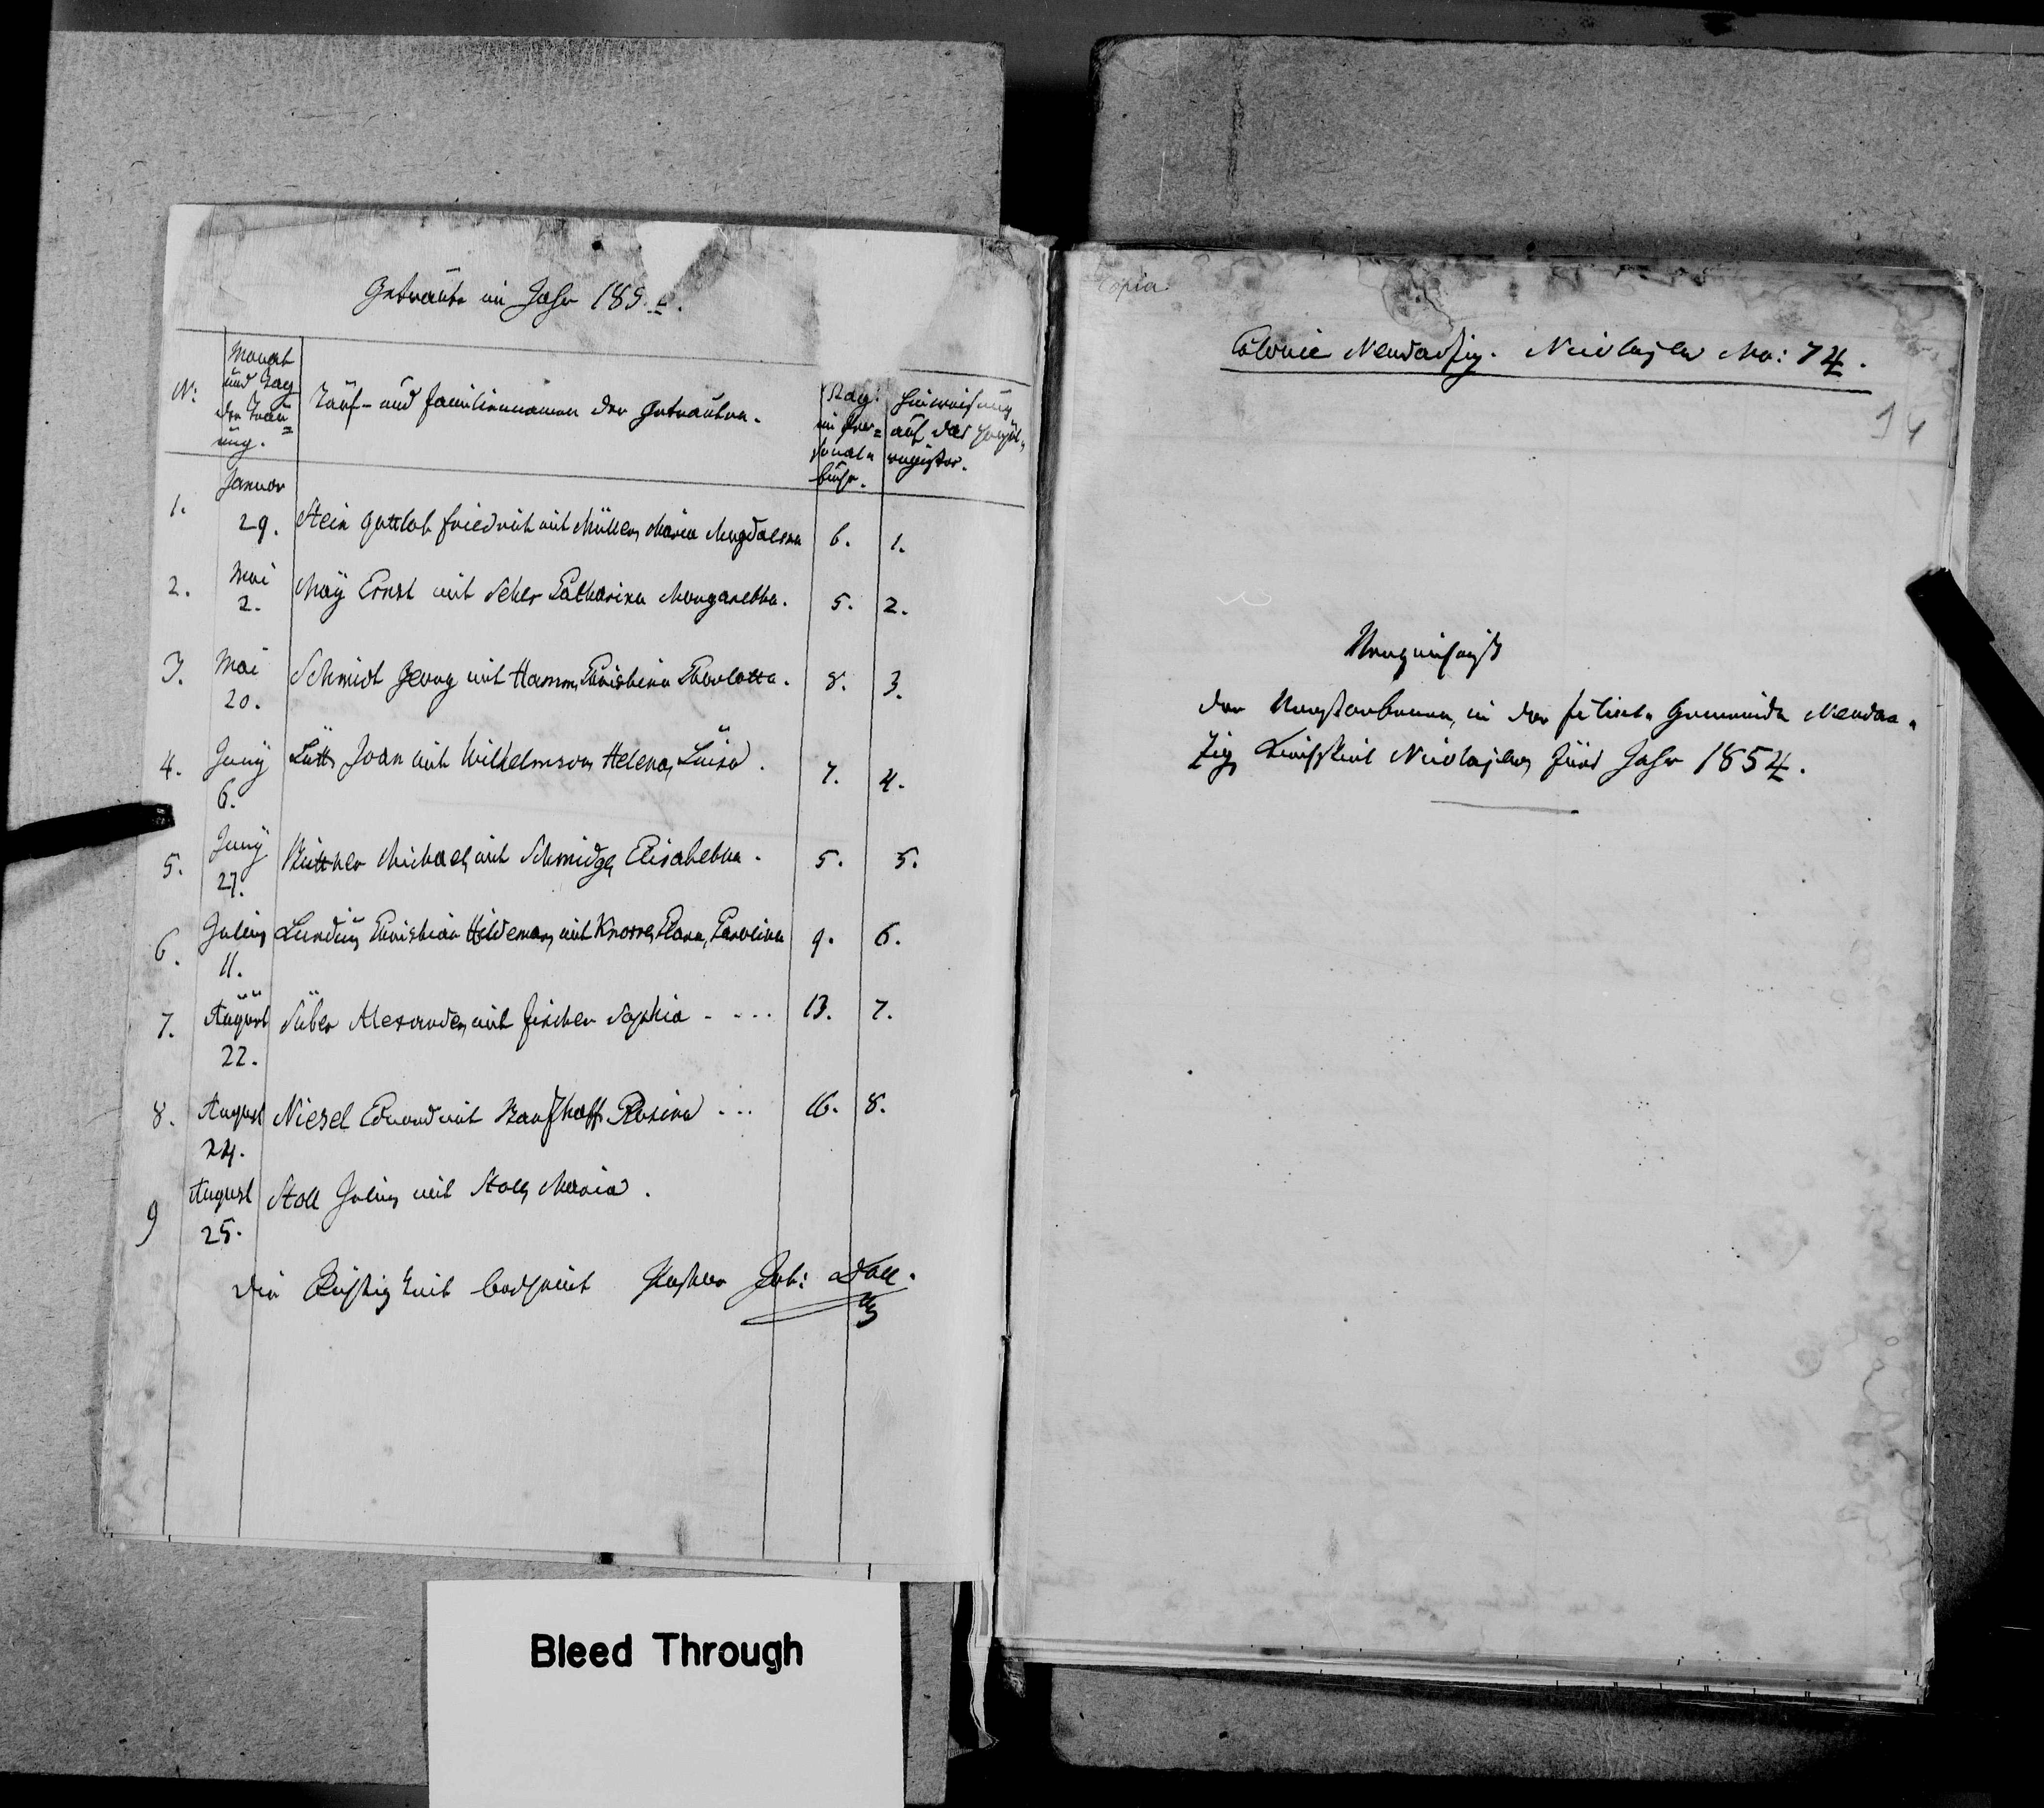 Getraute im Jahr 185
N:
Monat
und Tag
der Trau=
ung.
Tauf- und Familiennamen der Getrauten.
Pag:
im Per=
sonal=
buche.
Hinweisung
auf das
register.
1.
Januar
29.
Stein Gottlob Friedrich mit Müller, Maria Magdalena
6.
1.
2.
Mai
2.
Maÿ Ernst mit Seher Catharina Margaretha.
5.
2.
3.
Mai
20.
Schmidt Georg mit Hamm, Christina Charlotta.
8.
3.
4.
Juny
6.
Lütt, Joan mit Wilhelmson, Helena, Luisa.
7.
4.
5.
Juny
27.
Büttner Michael, mit Schmidge, Elisabetha.
5.
5.
6.
July
11.
Lundin, Christian Hildeman, mit Knorre, Clara, Carolina
9.
6.
7.
August
22.
Süber Alexander, mit Fischer Sophia - - - .
13.
7.
8.
August
24.
Niesel Eduard mit Rosina . . .
16.
8.
9
August
25.
Stoll Julius mit Stoll, Maria.
Die Richtigkeit bescheint Küster Joh: Doll.
Copia.
Colonie Neudanzig. Nicolajew No: 74.
14
Verzeichniß
der Verstorbenen, in der Gemeinde Neudan=
zig Kirchspiel Nicolajew, fürs Jahr 1854.
Bleed Through